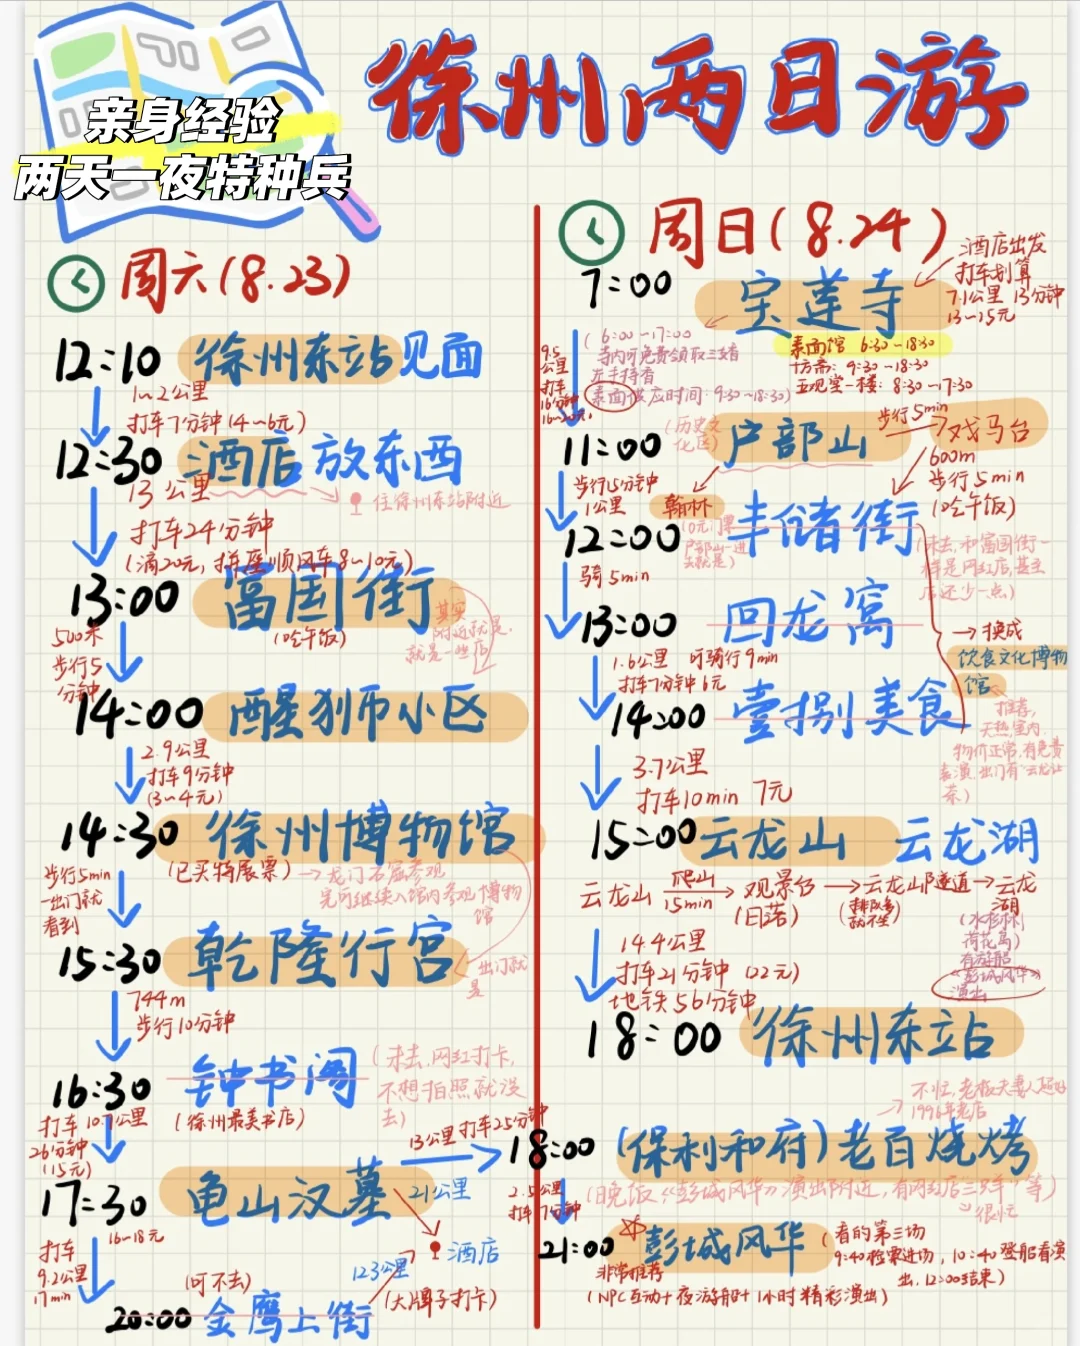 亲身经验
两天一夜特种兵
徐州两日游
周六(8.23)
12:10 徐州东站见面
1~2公里
打车7分钟(4~6元)
12:30 酒店 放东西
住徐州东站附近
13公里
打车24分钟
(滴20元,拼座顺风车8~10元)
13:00 富国街
(吃午饭)
其实
附近就是,
就是一些店
500米
步行5
分钟
14:00 醒狮小区
2.9公里
打车9分钟
(3~4元)
14:30 徐州博物馆
(已买特展票)
龙门石窟参观
完可继续入馆内参观博物
馆
步行5min
一出门就
看到
15:30 乾隆行宫
出门就
是
744m
步行10分钟
16:30 钟书阁
(徐州最美书店)
(未去,网红打卡,
不想拍照就没
去)
打车10.7公里
26分钟
(15元)
17:30 龟山汉墓
13公里 打车25分钟
21公里
酒店
16~18元
打车
9.2公里
17min
12.3公里
(可不去)
20:00 金鹰上街
(大牌子打卡)
周日(8.24)
酒店出发
打车划算
7.1公里 13分钟
13~15元
7:00 宝莲寺
(6:00~17:00
寺内可免费领取三支香
左手持香
素面供应时间:9:30~18:30)
素面馆 6:30~18:30
十方斋:9:30~18:30
五观堂一楼:8:30~17:30
9.5
公里
打车
16分钟
11:00 户部山
(历史文
化区)
步行5min
戏马台
600m
步行5min
(吃午饭)
步行15分钟
1公里
翰林
10元门票
户部山一进
去就是)
12:00 丰储街
(未去,和富国街一
样是网红店,甚至
店还少一点)
骑5min
13:00 回龙窝
换成
饮食文化博物
馆
推荐,
天热,室内,
物价正常,有免费
表演,出门有"云龙让
茶)
1.6公里 可骑行9min
打车7分钟6元
14:00 壹捌美食
3.7公里
打车10min 7元
15:00 云龙山 云龙湖
云龙山 爬山 15min 观景台 云龙山隧道 云龙
(日落) (排队多 湖
就不坐)
(水杉林
荷花岛)
有游船
"彭城风华"
演出
14.4公里
打车21分钟 (22元)
地铁56分钟
18:00 徐州东站
不忙,老板夫妻人超好
1996年老店
18:00 (保利和府)老百烧烤
(晚饭《彭城风华》演出附近,有网红店"三只羊"等)
很忙
2.5公里
打车7分钟
21:00 彭城风华
非常推荐
(看的第三场
9:40检票进场,10:40登船看演
出,12:00结束)
(NPC互动+夜游船+1小时精彩演出)